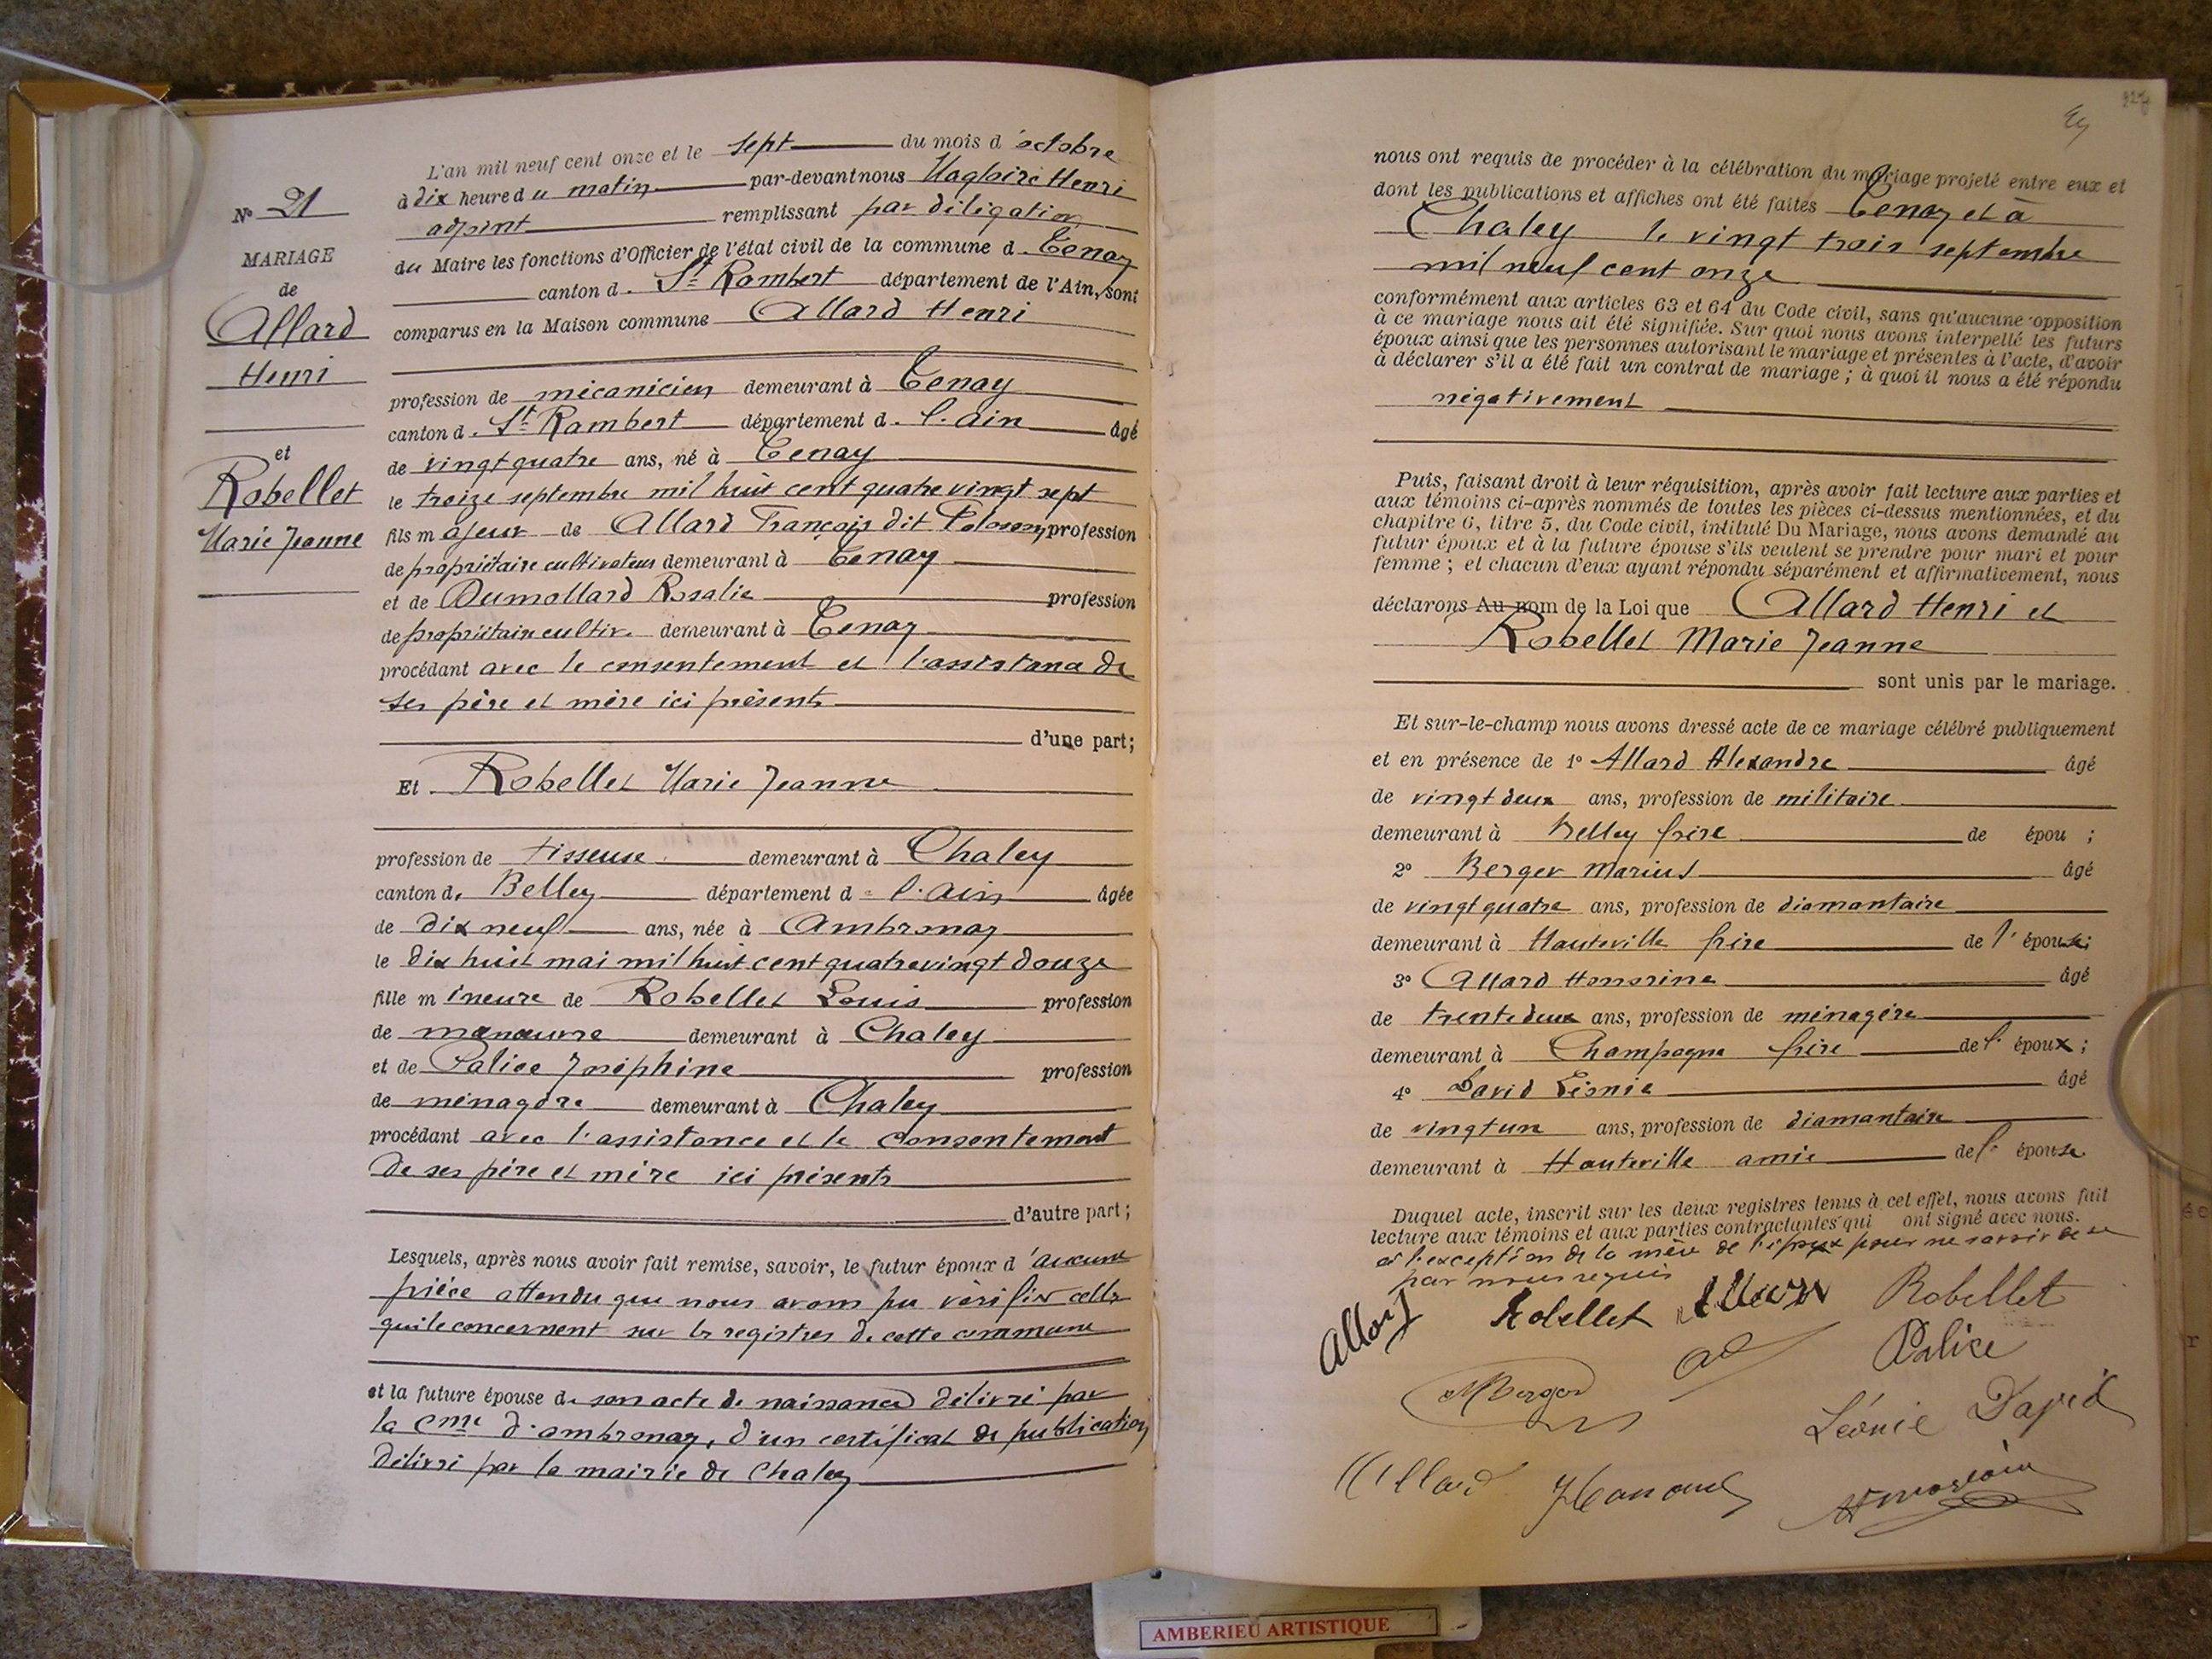 N° 21
MARIAGE
de
Allard
Henri
et
Robellet
Marie Jeanne
L'an mil neuf cent onze et le sept du mois d'octobre
à dix heure du matin par-devant nous Henri
adjoint remplissant par délégation
du Maire les fonctions d'Officier de l'état civil de la commune d. Tenay
canton d. St Rambert département de l'Ain, sont
comparus en la Maison commune Allard Henri
profession de mécanicien demeurant à Tenay
canton d. St Rambert département d. l'Ain âgé
de vingt quatre ans, né à Tenay
le treize septembre mil huit cent quatre vingt sept
fils majeur de Allard François dit profession
de propriétaire cultivateur demeurant à Tenay
et de Dumollard Rosalie profession
de propriétaire cultiv. demeurant à Tenay
procédant avec le consentement et l'assistance de
ses père et mère ici présents
d'une part;
Et Robellet Marie Jeanne
profession de tisseuse demeurant à Chaley
canton de Belley département d l'Ain âgée
de dix neuf ans, née à Ambronay
le dix huit mai mil huit cent quatre vingt douze
fille mineure de Robellet Louis profession
de manœuvre demeurant à Chaley
et de Palice Joséphine profession
de ménagère demeurant à Chaley
procédant avec l'assistance et le consentement
de ses père et mère ici présents
d'autre part;
Lesquels, après nous avoir fait remise, savoir, le futur époux d'aucune
pièce attendu que nous avons pu vérifier celles
qui le concernent sur les registres de cette commune
et la future épouse de son acte de naissance délivré par
la Cme d'Ambronay, d'un certificat de publication
délivré par la mairie de Chaley
nous ont requis de procéder à la célébration du mariage projeté entre eux et
dont les publications et affiches ont été faites Tenay et à
Chaley le vingt trois septembre
mil neuf cent onze
conformément aux articles 63 et 64 du Code civil, sans qu'aucune opposition
à ce mariage nous ait été signifiée. Sur quoi nous avons interpellé les futurs
époux ainsi que les personnes autorisant le mariage et présentes à l'acte, d'avoir
à déclarer s'il a été fait un contrat de mariage ; à quoi il nous a été répondu
négativement
Puis, faisant droit à leur réquisition, après avoir fait lecture aux parties et
aux témoins ci-après nommés de toutes les pièces ci-dessus mentionnées, et du
chapitre 6, titre 5, du Code civil, intitulé Du Mariage, nous avons demandé au
futur époux et à la future épouse s'ils veulent se prendre pour mari et pour
femme ; et chacun d'eux ayant répondu séparément et affirmativement, nous
déclarons Au nom de la Loi que Allard Henri et
Robellet Marie Jeanne
sont unis par le mariage.
Et sur-le-champ nous avons dressé acte de ce mariage célébré publiquement
et en présence de 1° Allard Alexandre âgé
de vingt deux ans, profession de militaire
demeurant à Belley frère de épou ;
2° Berger Marius âgé
de vingt quatre ans, profession de diamantaire
demeurant à Hauteville frère de l'épouse;
3° Allard Honorine âgé
de trente deux ans, profession de ménagère
demeurant à Champagne frère de l'époux ;
4° David Léonie âgé
de vingt un ans, profession de diamantaire
demeurant à Hauteville amie de l'épouse
Duquel acte, inscrit sur les deux registres tenus à cet effet, nous avons fait
lecture aux témoins et aux parties contractantes qui ont signé avec nous.
à l'exception de la mère de l'époux pour ne savoir de ce
par nous requis
Allard Robellet Allard Robellet
MBerger Palice
Léonie David
Allard
AMBERIEU ARTISTIQUE